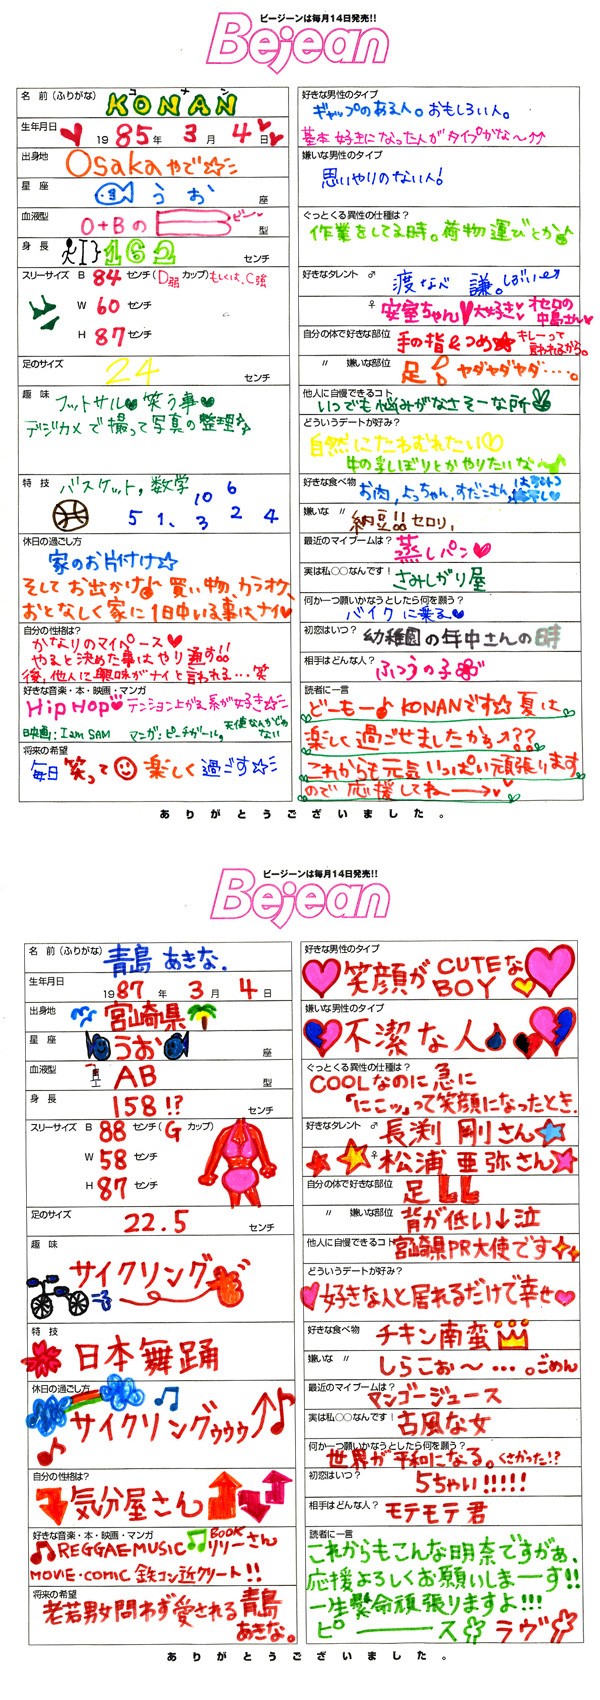 ビージーンは毎月14日発売!!
Bejean
名 前(ふりがな)
コ ナ ン
KONAN
生年月日
1985年 3月 4日
出身地
Osakaやで
星 座
うお 座
血液型
O+Bの 型
身 長
162 センチ
スリーサイズ B 84 センチ(D弱 カップ)もしくは、C強
W 60 センチ
H 87 センチ
足のサイズ
24 センチ
趣 味
フットサル 笑う事
デジカメで撮って写真の整理
特 技
バスケット, 数学
10 6
5 1、 3 2 4
休日の過ごし方
家のお片付け☆
そしてお出かけ♪ 買い物、カラオケ、
おとなしく家に1日中いる事はナイ
自分の性格は?
かなりのマイペース♥
やると決めた事はやり通す!!
後、他人に興味がナイと言われる…笑
好きな音楽・本・映画・マンガ
HipHop テンション上がる系が好き☆
映画:I am SAM マンガ:ピーチガール, 天使なんかじゃない
将来の希望
毎日 笑って 楽しく 過ごす☆
好きな男性のタイプ
ギャップのある人。おもしろい人。
基本 好きになった人がタイプかな〜↑↑
嫌いな男性のタイプ
思いやりのない人!
ぐっとくる異性の仕種は?
作業をしてる時。荷物運びとか♪
好きなタレント ♂
渡なべ 謙。しぶい
♀
安室ちゃん♥大好き♥ オセロの中島さん♥
自分の体で好きな部位
手の指&つめ☆ キレーって言われるから。
〃 嫌いな部位
足! ヤダヤダヤダ‥‥。
他人に自慢できるコト
いつでも悩みがなさそーな所
どういうデートが好み?
自然にたわむれたい♡
牛の乳しぼりとかやりたいな〜
好きな食べ物
お肉, よっちゃん, すだこさん,
嫌いな 〃
納豆!! セロリ,
最近のマイブームは?
蒸しパン♥
実は私○○なんです!
さみしがり屋
何か一つ願いかなうとしたら何を願う?
バイクに乗る♥
初恋はいつ?
幼稚園の年中さんの時
相手はどんな人?
ふつうの子
読者に一言
どーもー♪ KONANです☆ 夏は
楽しく過ごせましたかぁ??
これからも元気いっぱい頑張ります
ので応援してねー→♥
ありがとうございました。
ビージーンは毎月14日発売!!
Bejean
名 前(ふりがな)
青島 あきな.
生年月日
1987年 3月 4日
出身地
宮崎県
星 座
うお 座
血液型
AB 型
身 長
158!? センチ
スリーサイズ B 88 センチ(G カップ)
W 58 センチ
H 87 センチ
足のサイズ
22.5 センチ
趣 味
サイクリング
特 技
日本舞踊
休日の過ごし方
サイクリングゥゥゥ
自分の性格は?
気分屋さん
好きな音楽・本・映画・マンガ
REGGAE MUSIC BOOK リリーさん
MOVIE・COMIC 鉄コン近クリート!!
将来の希望
老若男女問わず愛される青島
あきな。
好きな男性のタイプ
笑顔がCUTEな
BOY
嫌いな男性のタイプ
不潔な人
ぐっとくる異性の仕種は?
COOLなのに急に
"にこッ"って笑顔になったとき.
好きなタレント ♂
長渕 剛さん
♀
松浦 亜弥さん
自分の体で好きな部位
足
〃 嫌いな部位
背が低い↓泣
他人に自慢できるコト
宮崎県PR大使です
どういうデートが好み?
好きな人と居れるだけで幸せ
好きな食べ物
チキン南蛮
嫌いな 〃
しらこぉ〜…。ごめん
最近のマイブームは?
マンゴージュース
実は私○○なんです!
古風な女
何か一つ願いかなうとしたら何を願う?
世界が平和になる。くさかった!?
初恋はいつ?
5ちゃい!!!!!
相手はどんな人?
モテモテ君
読者に一言
これからもこんな明奈ですがぁ、
応援よろしくお願いしまーす!!
一生懸命頑張りますよ!!!
ピース ラヴ
ありがとうございました。